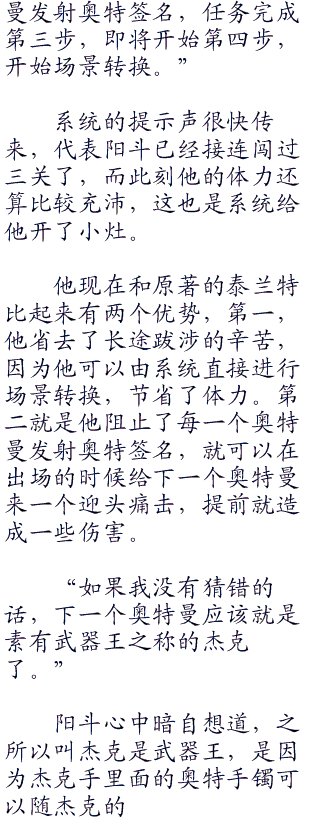 曼发射奥特签名，任务完成
第三步，即将开始第四步，
开始场景转换。”
系统的提示声很快传
来，代表阳斗已经接连闯过
三关了，而此刻他的体力还
算比较充沛，这也是系统给
他开了小灶。
他现在和原著的泰兰特
比起来有两个优势，第一，
他省去了长途跋涉的辛苦，
因为他可以由系统直接进行
场景转换，节省了体力。第
二就是他阻止了每一个奥特
曼发射奥特签名，就可以在
出场的时候给下一个奥特曼
来一个迎头痛击，提前就造
成一些伤害。
“如果我没有猜错的
话，下一个奥特曼应该就是
素有武器王之称的杰克
了。”
阳斗心中暗自想道，之
所以叫杰克是武器王，是因
为杰克手里面的奥特手镯可
以随杰克的